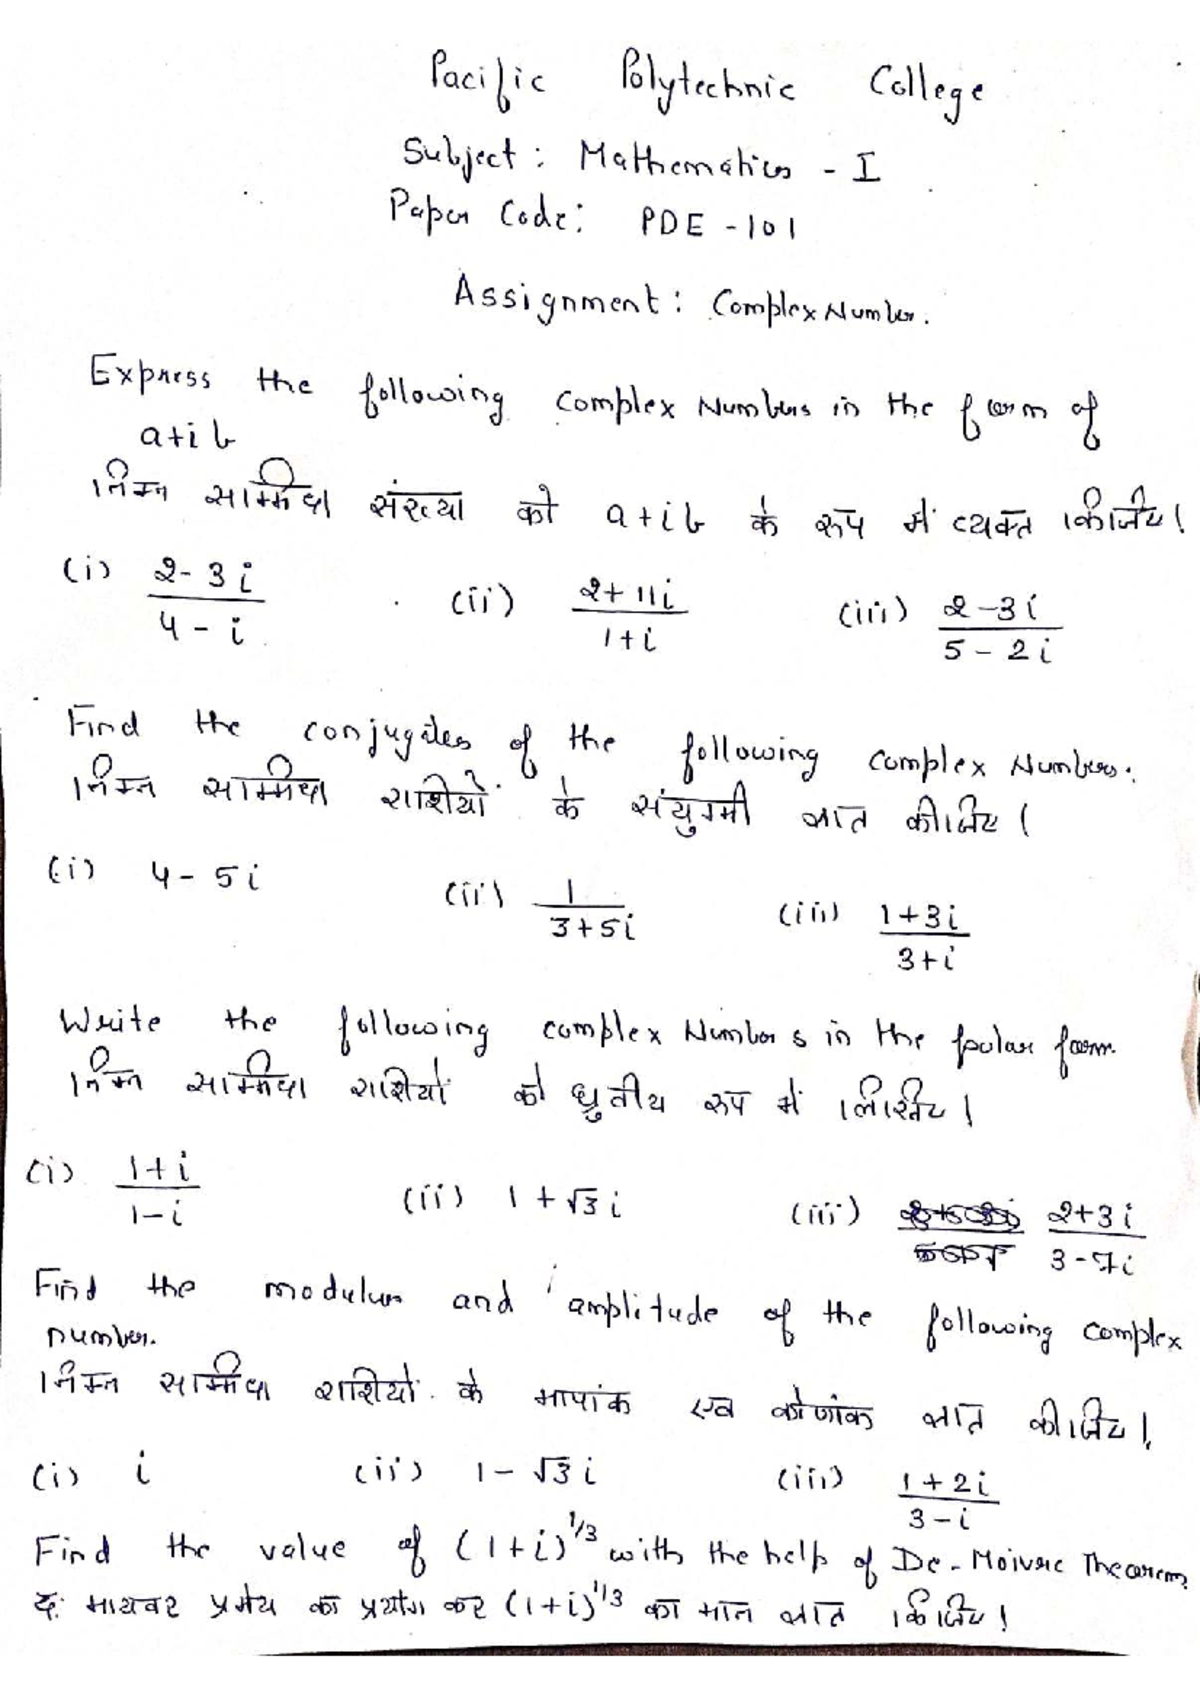 Pacific Polytechnic College
Subject: Mathematics - I
Paper Code: PDE - 101
Assignment: Complex Number.
Express the following complex Numbers in the form of
a+ib
निम्न सम्मिश्र संख्या को a+ib के रूप में व्यक्त कीजिए।
(i) 2-3i / 4-i (ii) 2+11i / 1+i (iii) 2-3i / 5-2i
Find the conjugates of the following complex Numbers.
निम्न सम्मिश्र राशियों के संयुग्मी ज्ञात कीजिए।
(i) 4-5i (ii) 1 / 3+5i (iii) 1+3i / 3+i
Write the following complex Numbers in the polar form.
निम्न सम्मिश्र राशियों को ध्रुवीय रूप में लिखिए।
(i) 1+i / 1-i (ii) 1+√3i (iii) 2+3i / 3-7i
Find the modulus and amplitude of the following complex
number.
निम्न सम्मिश्र राशियों के मापांक एव कोणांक ज्ञात कीजिए।
(i) i (ii) 1-√3i (iii) 1+2i / 3-i
Find the value of (1+i)^1/3 with the help of De-Moivre Theorem
द: मायवर प्रमेय का प्रयोग कर (1+i)^1/3 का मान ज्ञात कीजिए।